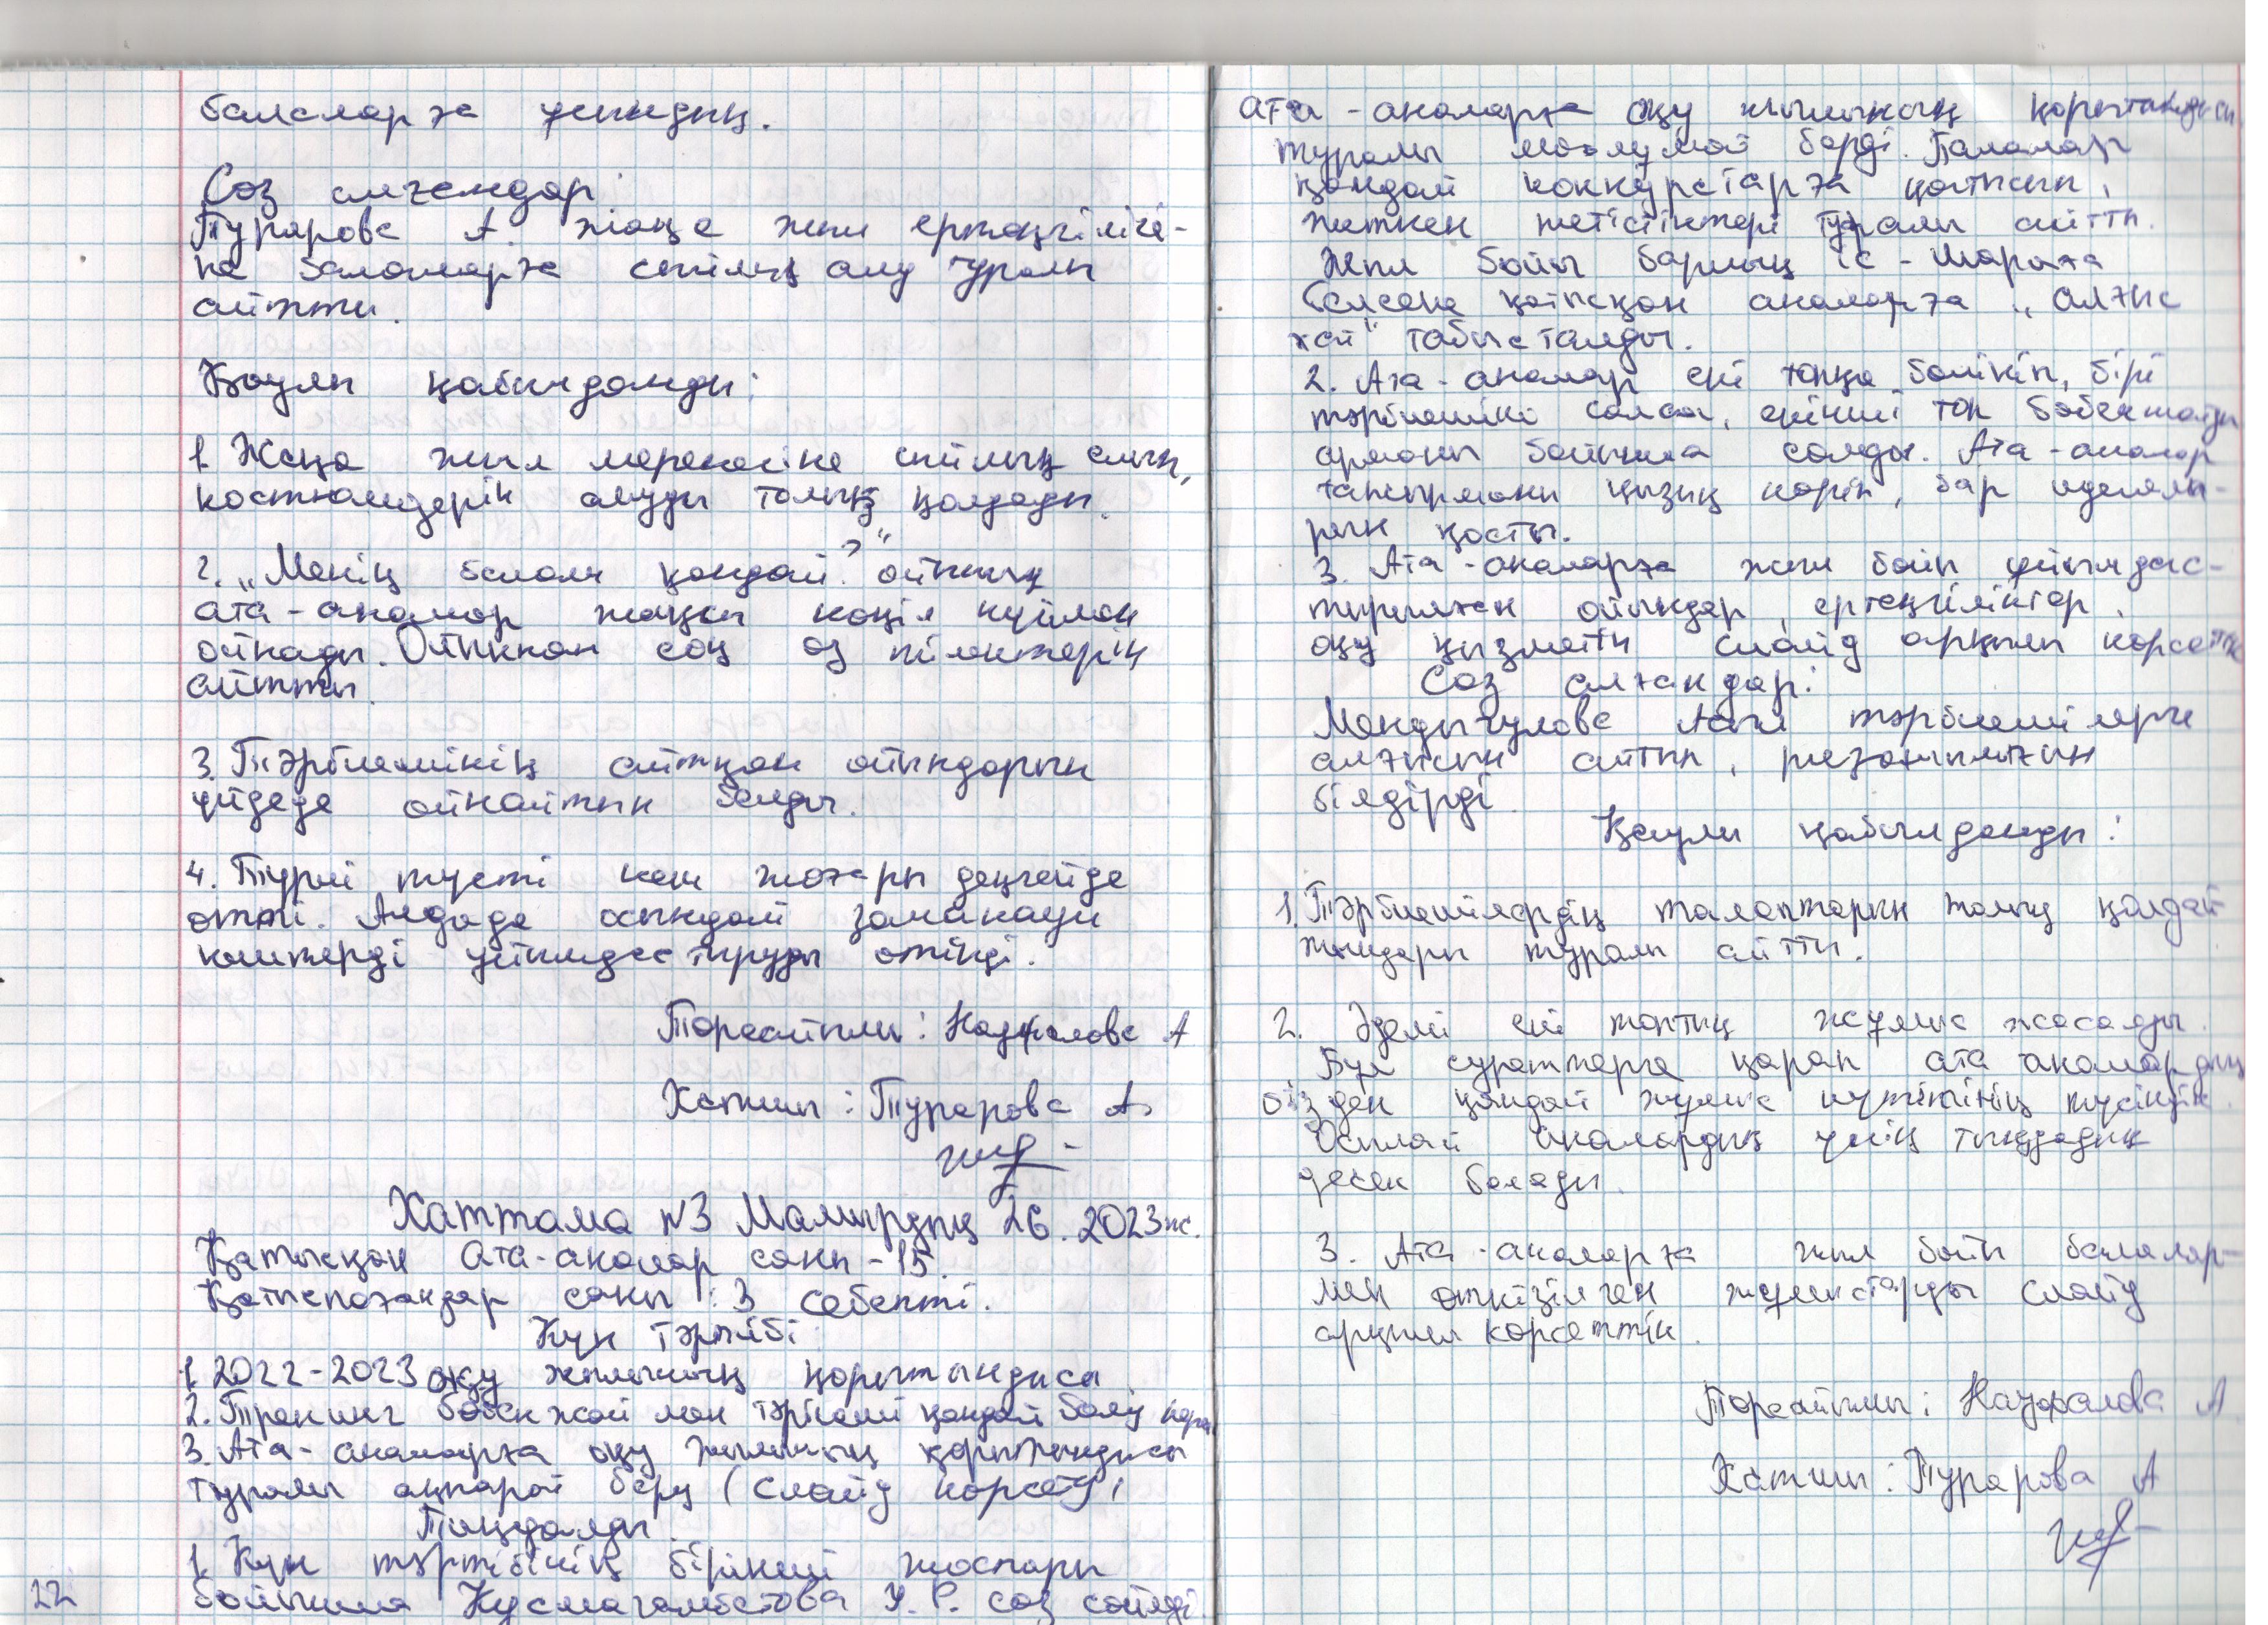 балаларға ұсындық.
Сөз алғандар:
Турарова А. жаңа жыл ертеңгілігі-
не балаларға сыйлық алу туралы
айтты.
Қаулы қабылданды:
1. Жаңа жыл мерекесіне сыйлық алып,
костюмдерін алуды толық қолдады.
2. „Менің балам қандай?" ойының
ата-аналар жақсы көңіл күймен
ойнады. Ойыннан соң өз пікілерін
айтты.
3. Тәрбиешінің айтқан ойындарын
үйдеде ойнайтын болды.
4. Түрлі түсті кеш жоғары деңгейде
өтті. Алдада осындай заманауи
кештерді ұйымдастыруды өтінді.
Төрайымы: Науфалова А
Хатшы: Турарова А.
Хаттама №3 Мамырдың 26. 2023ж.
Қатысқан Ата-аналар саны - 15.
Қатыспағандар саны: 3 себепті.
Күн тәртібі:
1. 2022-2023 оқу жылының қорытындысы
2. Тренинг бөбекжай мен тәрбиеші қандай болу керек
3. Ата-аналарға оқу жылының қорытындысы
туралы ақпарат беру (слайд көрсету)
Тыңдалды:
1. Күн тәртібінің бірінші жоспары
бойынша Кусмагамбетова У. Р. сөз сөйледі.
22
ата-аналарға оқу жылының қорытындысы
туралы мәлумат берді. Балалар
қандай конкурстарға қатысып,
жеткен жетістіктері туралы айтты.
Жыл бойы барлық іс-шараға
белсене қатысқан аналарға „Алғыс
хат" табысталды.
2. Ата-аналар екі топқа бөлініп, бірі
тәрбиешіні салса, екінші топ бөбекжайды
арманы бойынша салды. Ата-аналар
тапсырманы қызық көріп, бар идеяла-
рын қосты.
3. Ата-аналарға жыл бойы ұйымдас-
тырылған ойындар, ертеңгіліктер,
оқу қызметін слайд арқылы көрсеттік
Сөз алғандар:
Мендыгулова Асыл тәрбиешілерге
алғысын айтып, ризашылығын
білдірді.
Қаулы қабылданды:
1. Тәрбиешілердің талаптарын толық қолдай
тындары туралы айтты.
2. Әдемі екі топтық жұмыс жасалды.
Бұл суреттерге қарап ата аналардың
бізден қандай жұмыс күтетінін түсіндік.
Осылай аналардың үнін тыңдадық
десек болады.
3. Ата-аналарға жыл бойы балалар-
мен өткізілген жұмыстарды слайд
арқылы көрсеттік.
Төрайымы: Науфалова А.
Хатшы: Турарова А